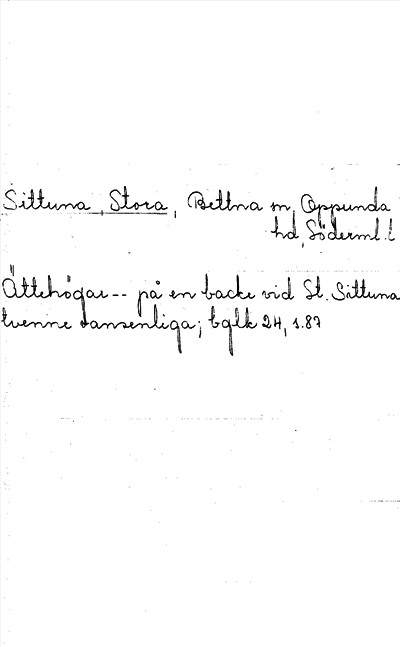 Sittuna, Stora, Bettna sn, Oppunda
hd, Söderml. l
Ättehögar -- på en backe vid St. Sittuna
tvenne ansenliga; bglk 24, s. 87